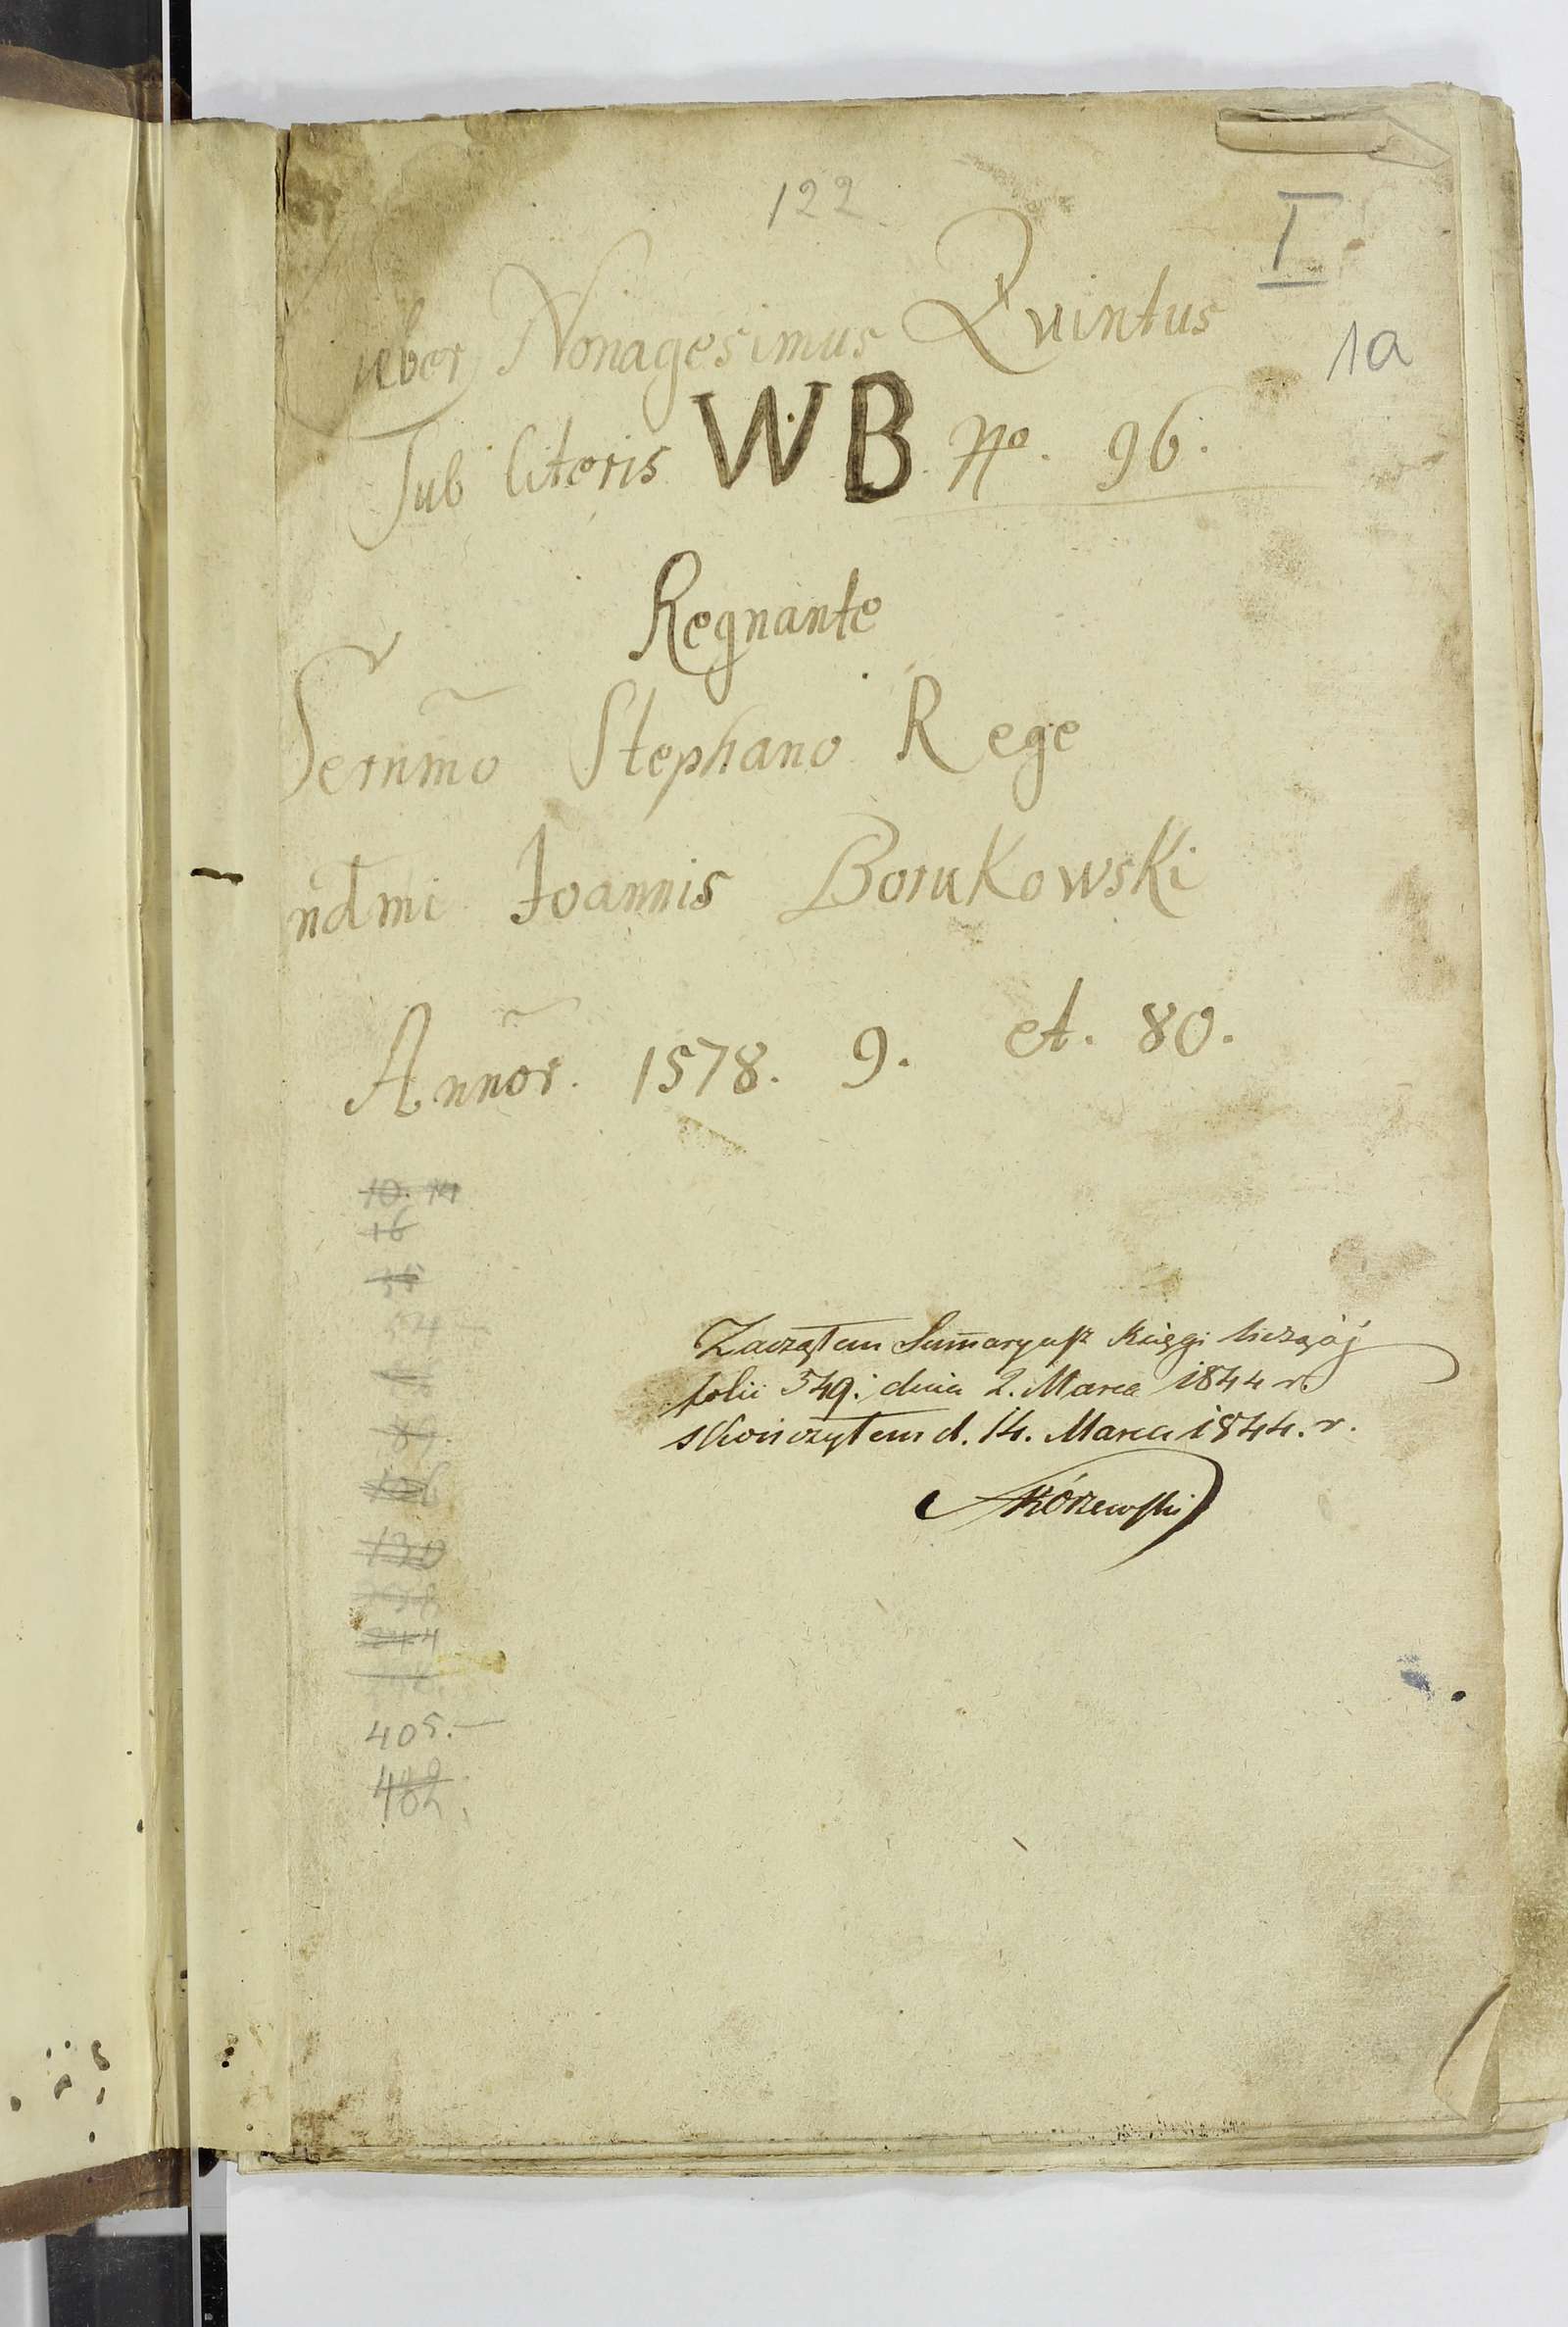 122
I
Liber Nonagesimus Quintus
1a
Sub literis WB No. 96.
Regnante
Sernm̃o Stephano Rege
ndmi Joannis Borukowski
Annõr. 1578. 9. et. 80.
10. 14
16
35
54 —
89.
106
130
244
405. —
Zacząłem Sum̅aryusz Księgi liczącéj
folii 549. dnia 2. Marca 1844 r.
skończyłem d. 14. Marca 1844. r.